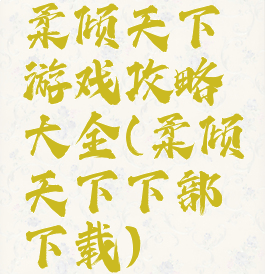 柔倾天下
游戏攻略
大全(柔倾
天下下部
下载)